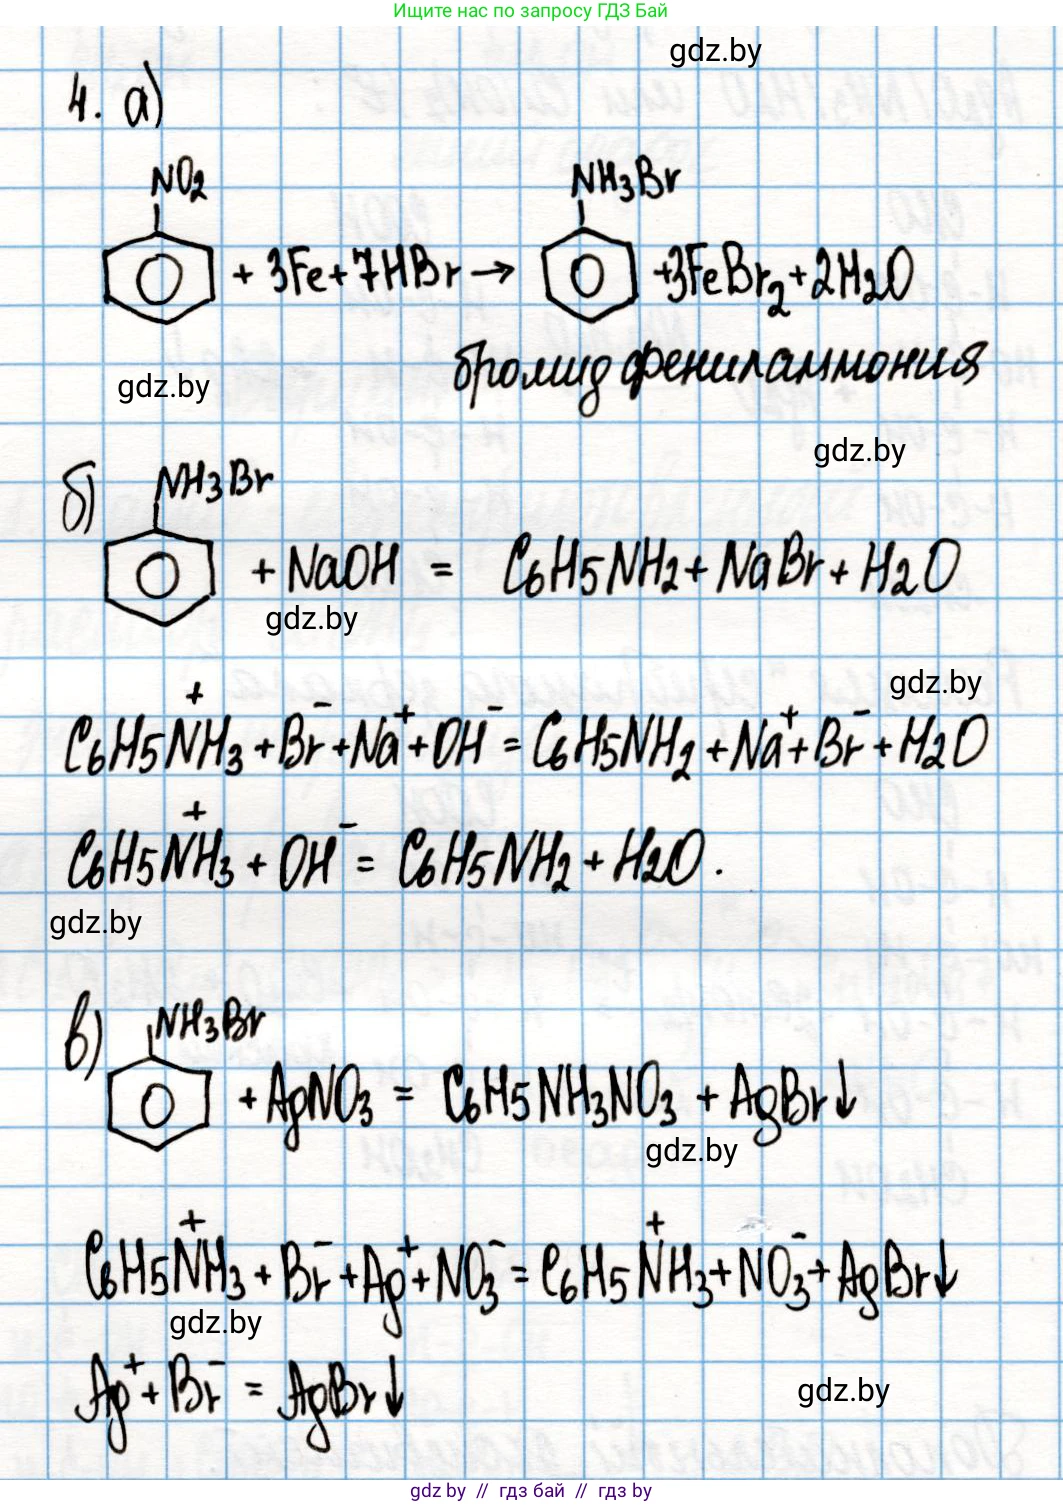 Ищите нас по запросу ГДЗ Бай
gdz.by
4. а)
NO2 NH3Br
+ 3Fe + 7HBr → +3FeBr2 + 2H2O
бромид фениламмония
gdz.by
gdz.by
б) NH3Br
+ NaOH = C6H5NH2 + NaBr + H2O
gdz.by
gdz.by
C6H5N⁺H3 + Br⁻ + Na⁺ + OH⁻ = C6H5NH2 + Na⁺ + Br⁻ + H2O
C6H5N⁺H3 + OH⁻ = C6H5NH2 + H2O.
gdz.by
в) NH3Br
+ AgNO3 = C6H5NH3NO3 + AgBr↓
gdz.by
C6H5N⁺H3 + Br⁻ + Ag⁺ + NO3⁻ = C6H5N⁺H3 + NO3⁻ + AgBr↓
gdz.by
Ag⁺ + Br⁻ = AgBr↓
gdz.by
gdz by // гдз бай // gdz by